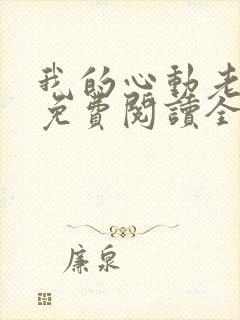 我的心動老
免費閱讀全
廉泉